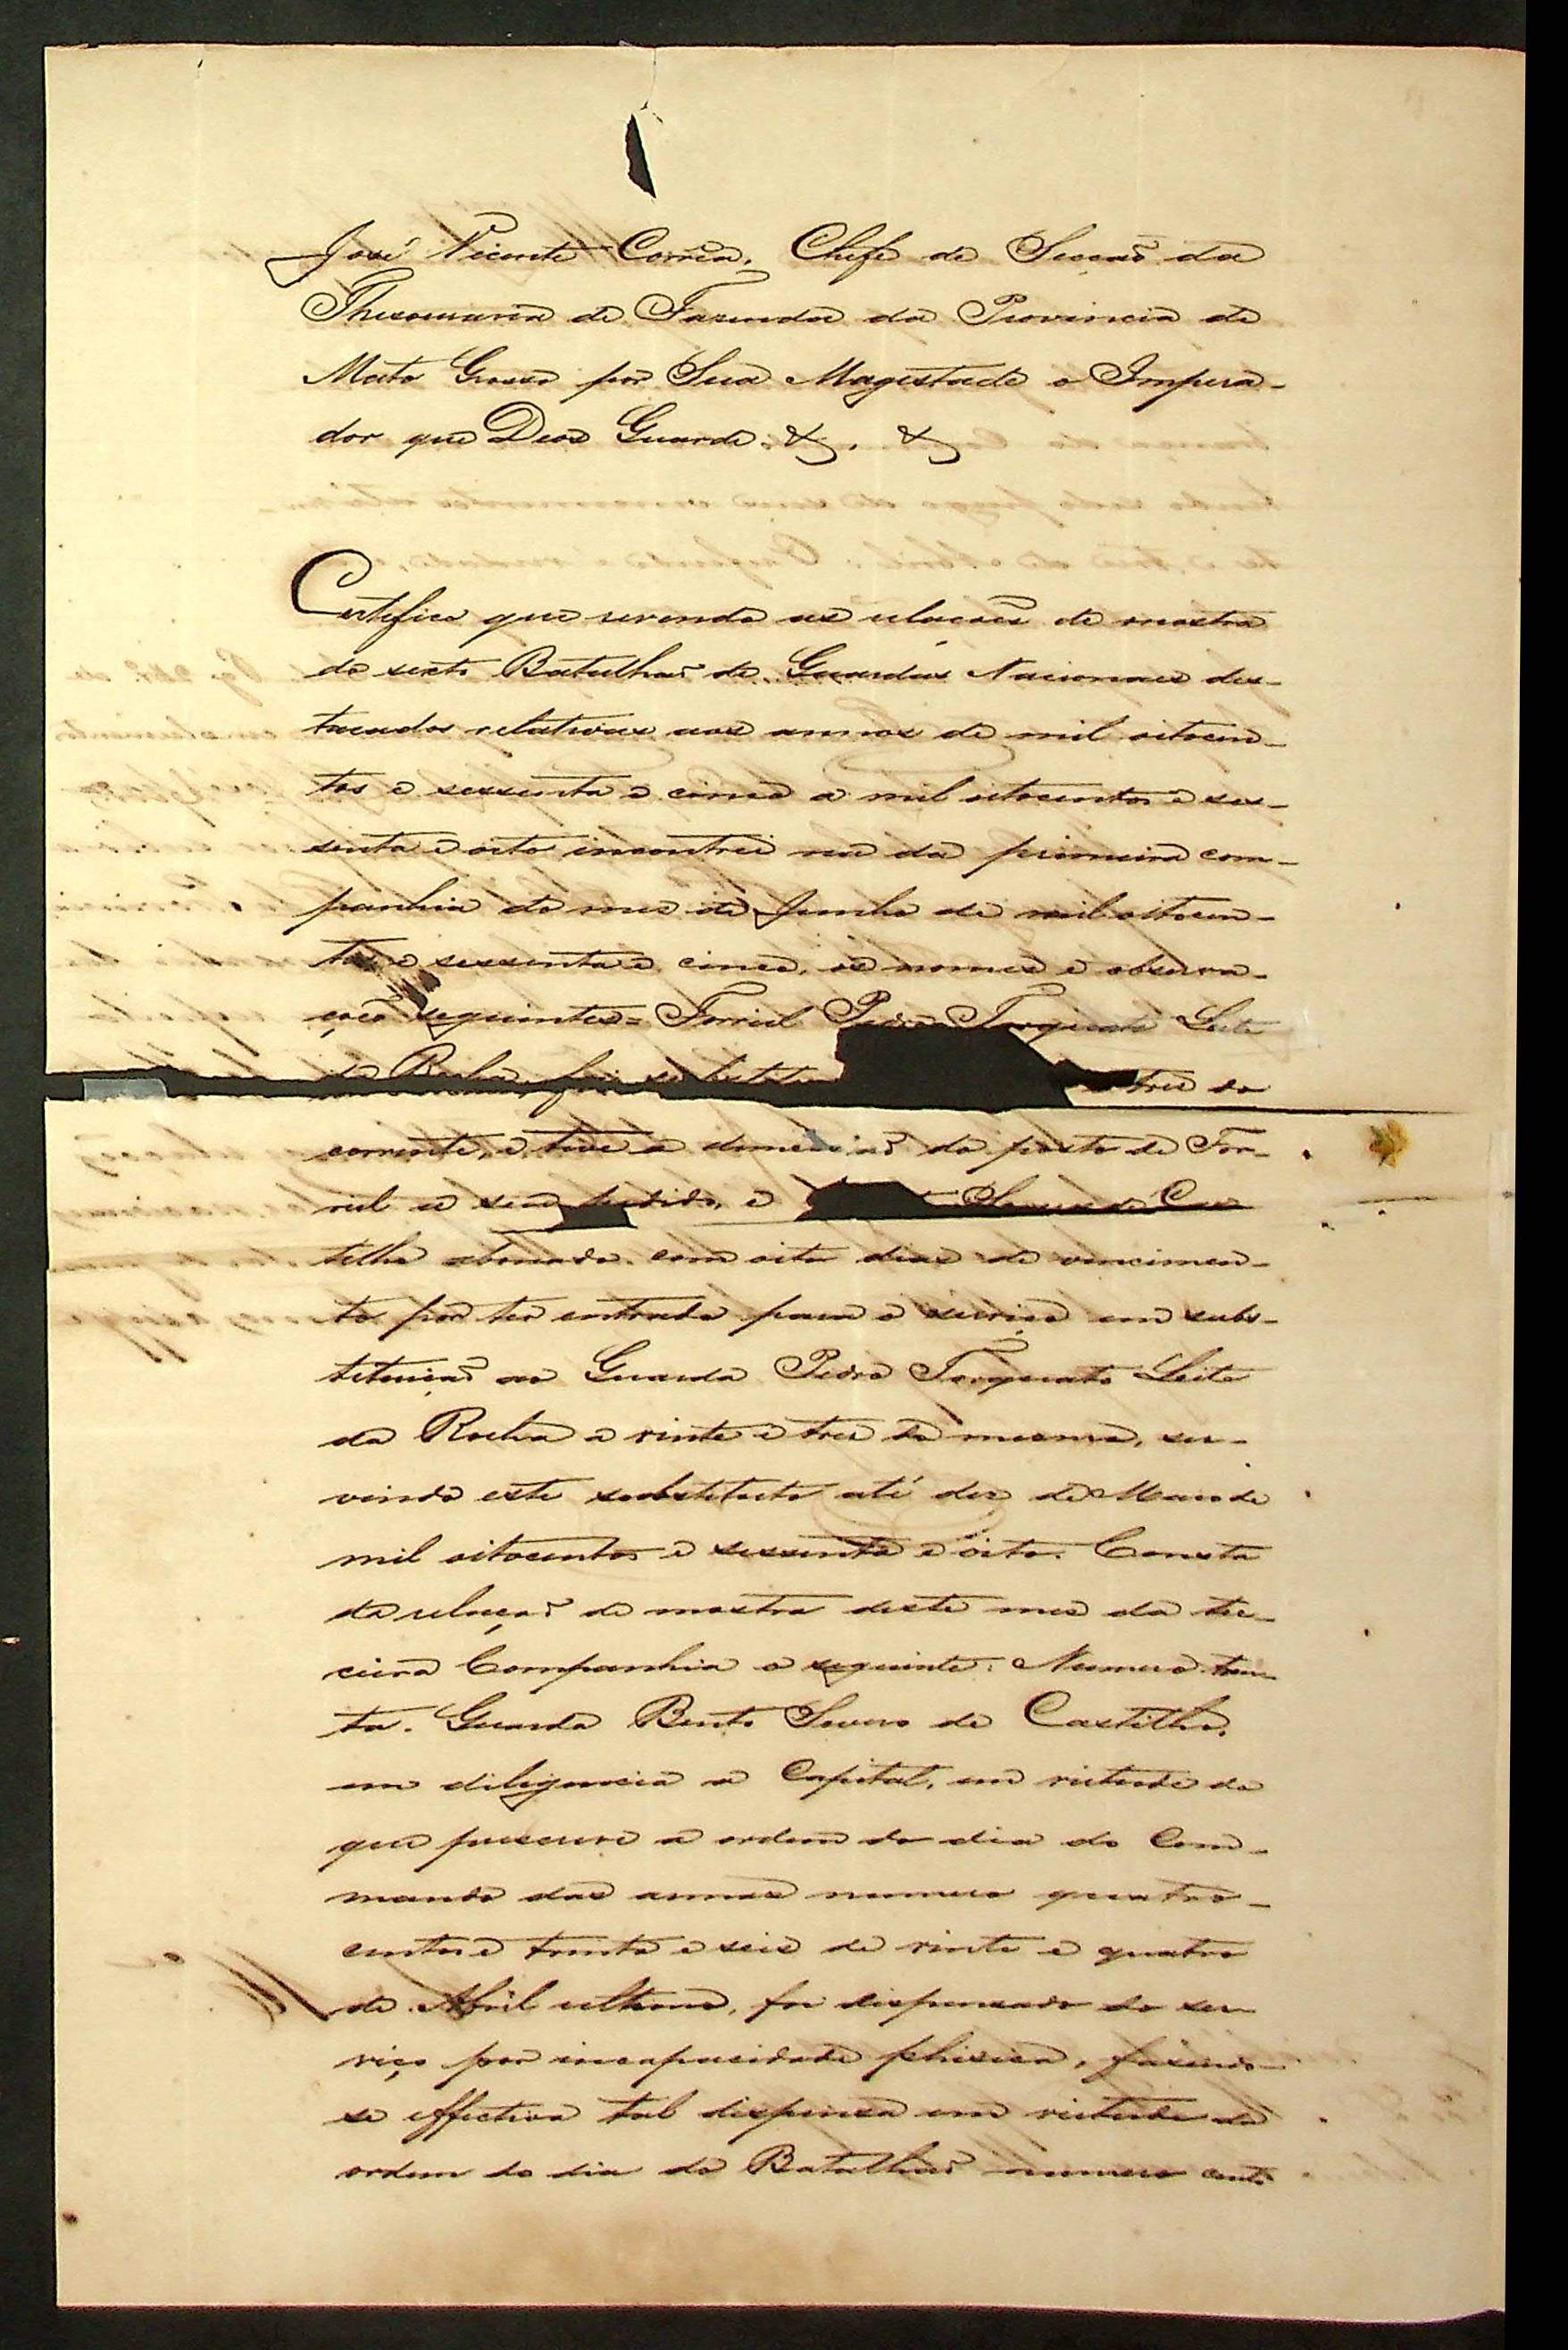 José Vicente Corrêa, Chefe de Secção da
Thesouraria de Fazenda da Provincia de
Mato Grosso por Sua Magestade o Impera-
dor que Deos Guarde. &. &
Certifico que revendo as relaçoẽs de mostra
do sexto Batalhaõ de Guardas Nacionaes des-
tacados relativas aos annos de mil oitocen-
tos e sessenta e cinco a mil oitocentos e ses-
senta e oito incontrei na da primeira com-
panhia do mes de Junho de mil oitocen-
tos e sessenta e cinco, os nomes e observa-
çoẽs seguintes = Forriel Pedro Torquato Leite
da Rocha, foi tres do
corrente, e teve a demissaõ do posto de For-
riel a seu pedido, e Severo de Cas
tilho abonado com oito dias de vencimen-
to por ter entrado para o serviço em subs-
tituiçaõ ao Guarda Pedro Torquato Leite
da Rocha a vinte e tres do mesmo, ser-
vindo este substituto até dez de Maio de
mil oitocentos e sessenta e oito. Consta
da relaçaõ de mostra deste mes da ter-
ceira Companhia o seguinte: Numero trin
ta. Guarda Bento Severo de Castilho,
em diligencia a Capital, em virtude do
que prescreve a ordem do dia do Com-
mando das armas numero quatro-
centos e trinta e seis de vinte e quatro
de Abril ultimo, foi dispensado do ser-
viço por incapacidade phisica, fasendo-
se effectiva tal dispensa em virtude da
ordem do dia do Batalhaõ numero cento